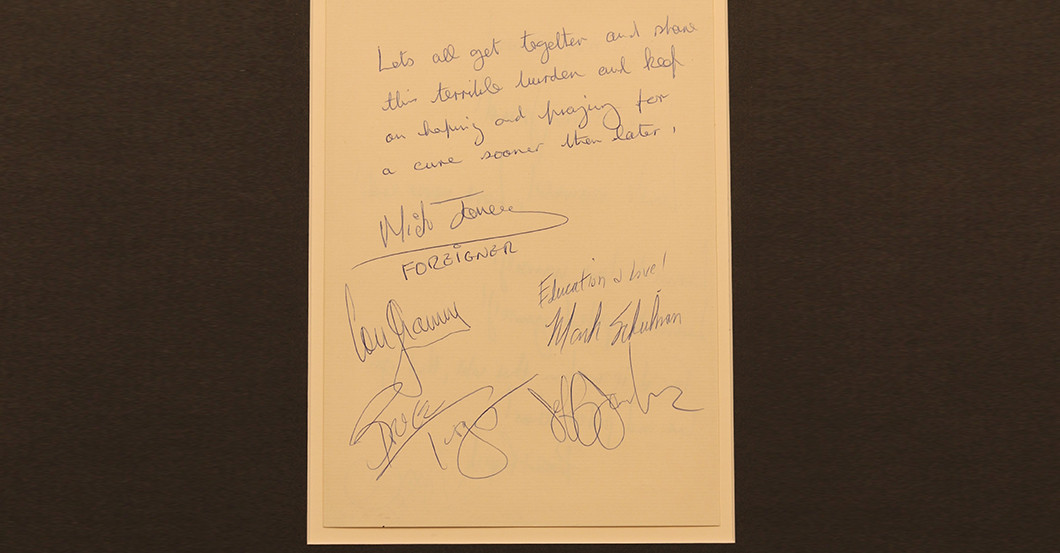 Lets all get togelter and share
this terrible burden and keep
on hoping and praying for
a cure sooner then later,
Mick Jones
FOREIGNER
Education & love!
Lou Gramm
Mark Schulman
Bruce Turgon
Jeff Jacobs